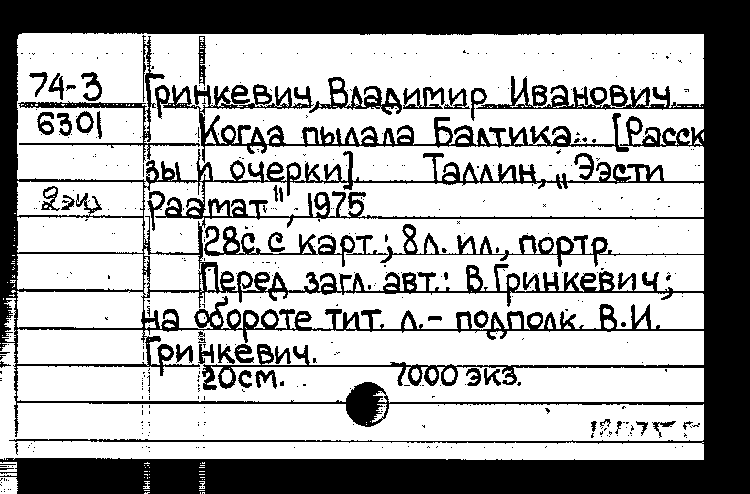 74-3 Гринкевич, Владимир Иванович.
6301 Когда пылала Балтика... [Расск
зы и очерки]. Таллин, „Ээсти
2 экз Раамат", 1975
28с. с карт.; 8л. ил., портр.
Перед загл. авт.: В. Гринкевич;
на обороте тит. л.- подполк. В.И.
Гринкевич.
20см. 7000 экз.